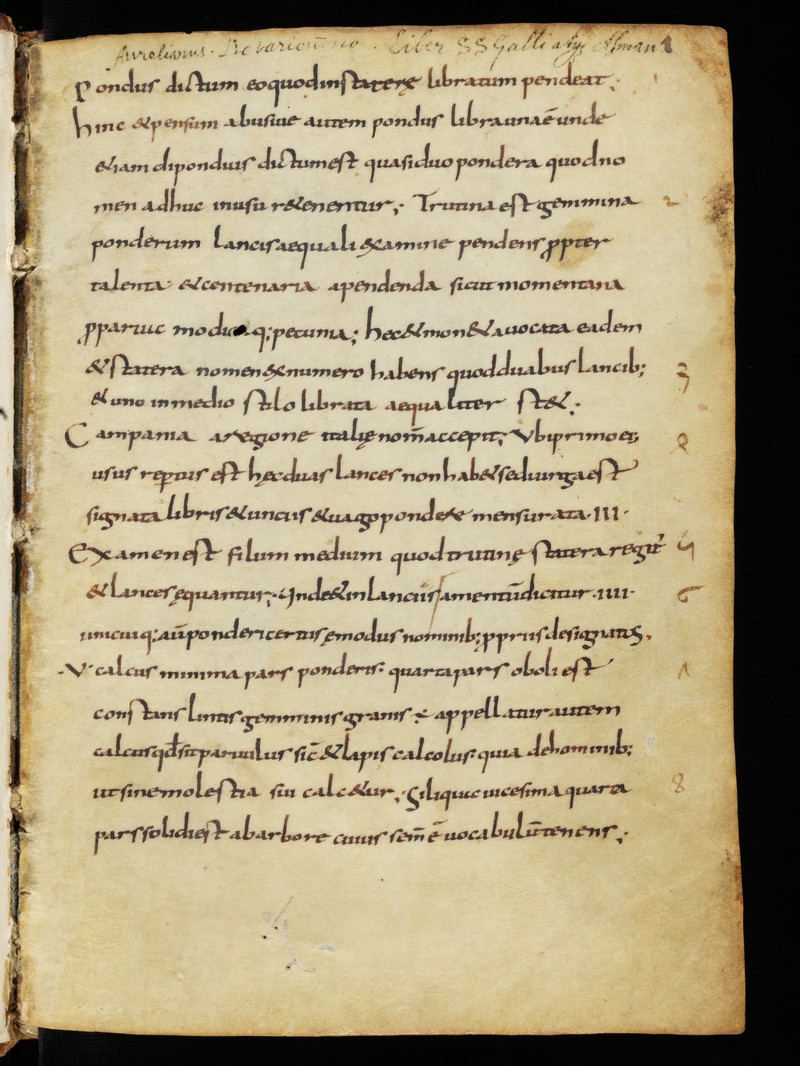 Aurelianus. Liber SS Galli
Pondus dictum eoquodinstaterę libratum pendeat;
hinc &pensum abusiue autem pondus librauna ē unde
&iam dipondius dictum est quasi duo pondera quod no
men adhuc inusu r&enentur; Trutina est gemmina 2
ponderum lancis aequali examine pendens ꝓpter
talenta &centenaria apendenda sicut momentana
ꝓparuc modicaq; pecunia; hec&mon&a uocata eadem
&statera nomen exnumero habens quodduabus lancib; 3
&uno inmedio stilo librata aequaliter st&;
Campania aregione italię nom̄ accepit; Ubi primo ei;
usus rep̄tus est hęc duas lances non hab& sed uirga est
signata libris &unciis &uago pondere mensurata · III ·
Examen est filum medium quod trutinę statera regit̄ 4
&lances ęquantur; Inde &inlanciis amentū dicitur · IIII · 6
unicuiq; aūponderi certus ē modus nominib; ꝓpriis designatus.
·V· calcus minima pars ponderis. quarta pars oboli est
constans lintis gemminis granis ÷ appellatur autem
calcus qd̄ sit paruulus sic̄ &lapis calcolus. quia dehominib;
ut sine molestia sui calc&ur; Siliquę uicesima quarta 8
pars solidi est abarbore cuius sem̄ ē uocabulū tenens;